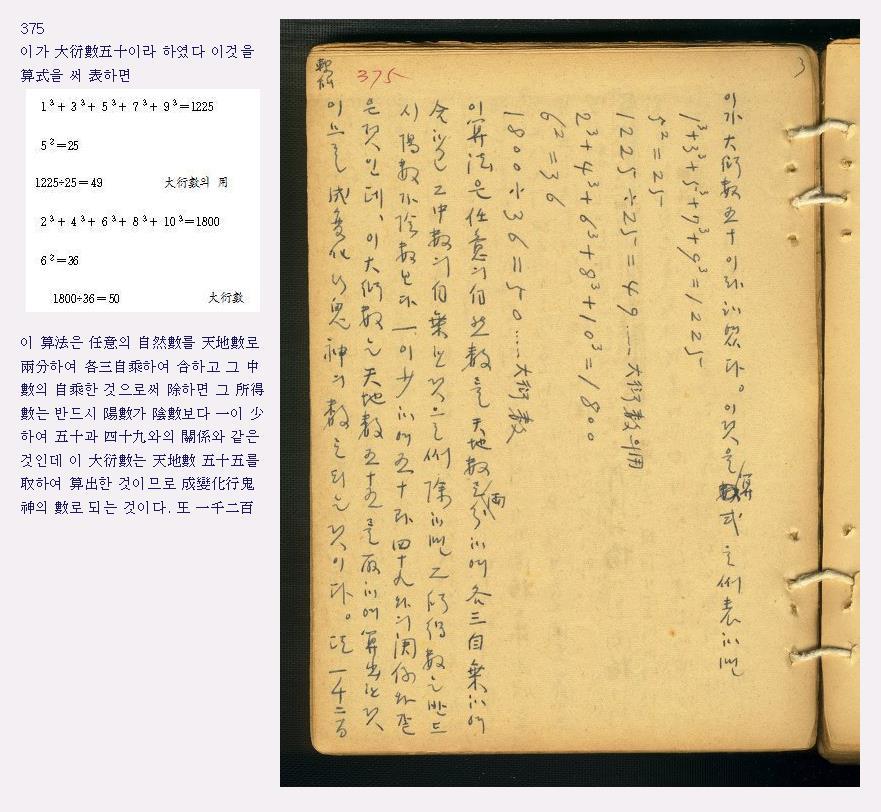 375
이가 大衍數五十이라 하였다 이것을
算式을 써 表하면
1³+ 3³+ 5³+ 7³+ 9³=1225
5²=25
1225÷25=49 大衍數의 用
2³+ 4³+ 6³+ 8³+ 10³=1800
6²=36
1800÷36=50 大衍數
이 算法은 任意의 自然數를 天地數로
兩分하여 各三自乘하여 合하고 그 中
數의 自乘한 것으로써 除하면 그 所得
數는 반드시 陽數가 陰數보다 一이 少
하여 五十과 四十九와의 關係와 같은
것인데 이 大衍數는 天地數 五十五를
取하여 算出한 것이므로 成變化行鬼
神의 數로 되는 것이다. 또 一千二百
3
이가 大衍數五十이라 하였다。이것을 算式으로써 表하면
1³+3³+5³+7³+9³=1225
5²=25
1225÷25=49……大衍數의用
2³+4³+6³+8³+10³=1800
6²=36
1800÷36=50……大衍數
이算法은任意의自然數를 天地數로兩分하여 各三自乘하여
合하고 그中數의自乘한것으로써 除하면 그所得數는반드
시陽數가陰數보다 一이少하여五十과四十九와의關係와같
은것인데、이大衍數는天地數五十五를取하여算出한것
이므로 成變化行鬼神의數로되는것이다。또一千二百
375